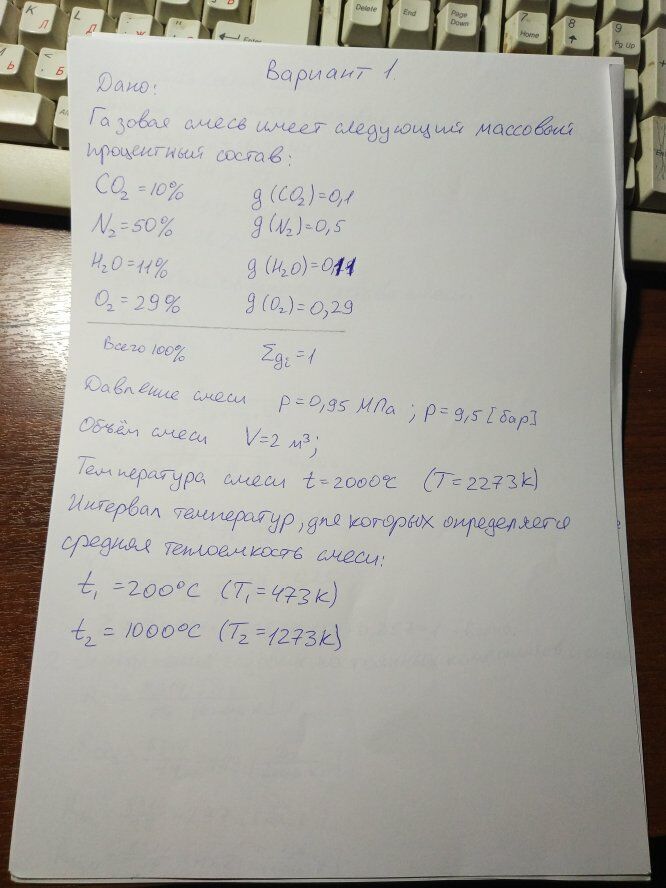 Delete
End
Page Down
7 Home
8
9 Pg Up
Enter
Вариант 1.
Дано:
Газовая смесь имеет следующий массовый
процентный состав:
CO₂ = 10% g (CO₂) = 0,1
N₂ = 50% g (N₂) = 0,5
H₂O = 11% g (H₂O) = 0,11
O₂ = 29% g (O₂) = 0,29
Всего 100% Σgᵢ = 1
Давление смеси p = 0,95 МПа ; p = 9,5 [бар]
Объём смеси V = 2 м³;
Температура смеси t = 2000°C (T = 2273K)
Интервал температур, для которых определяется
средняя теплоемкость смеси:
t₁ = 200°C (T₁ = 473K)
t₂ = 1000°C (T₂ = 1273K)